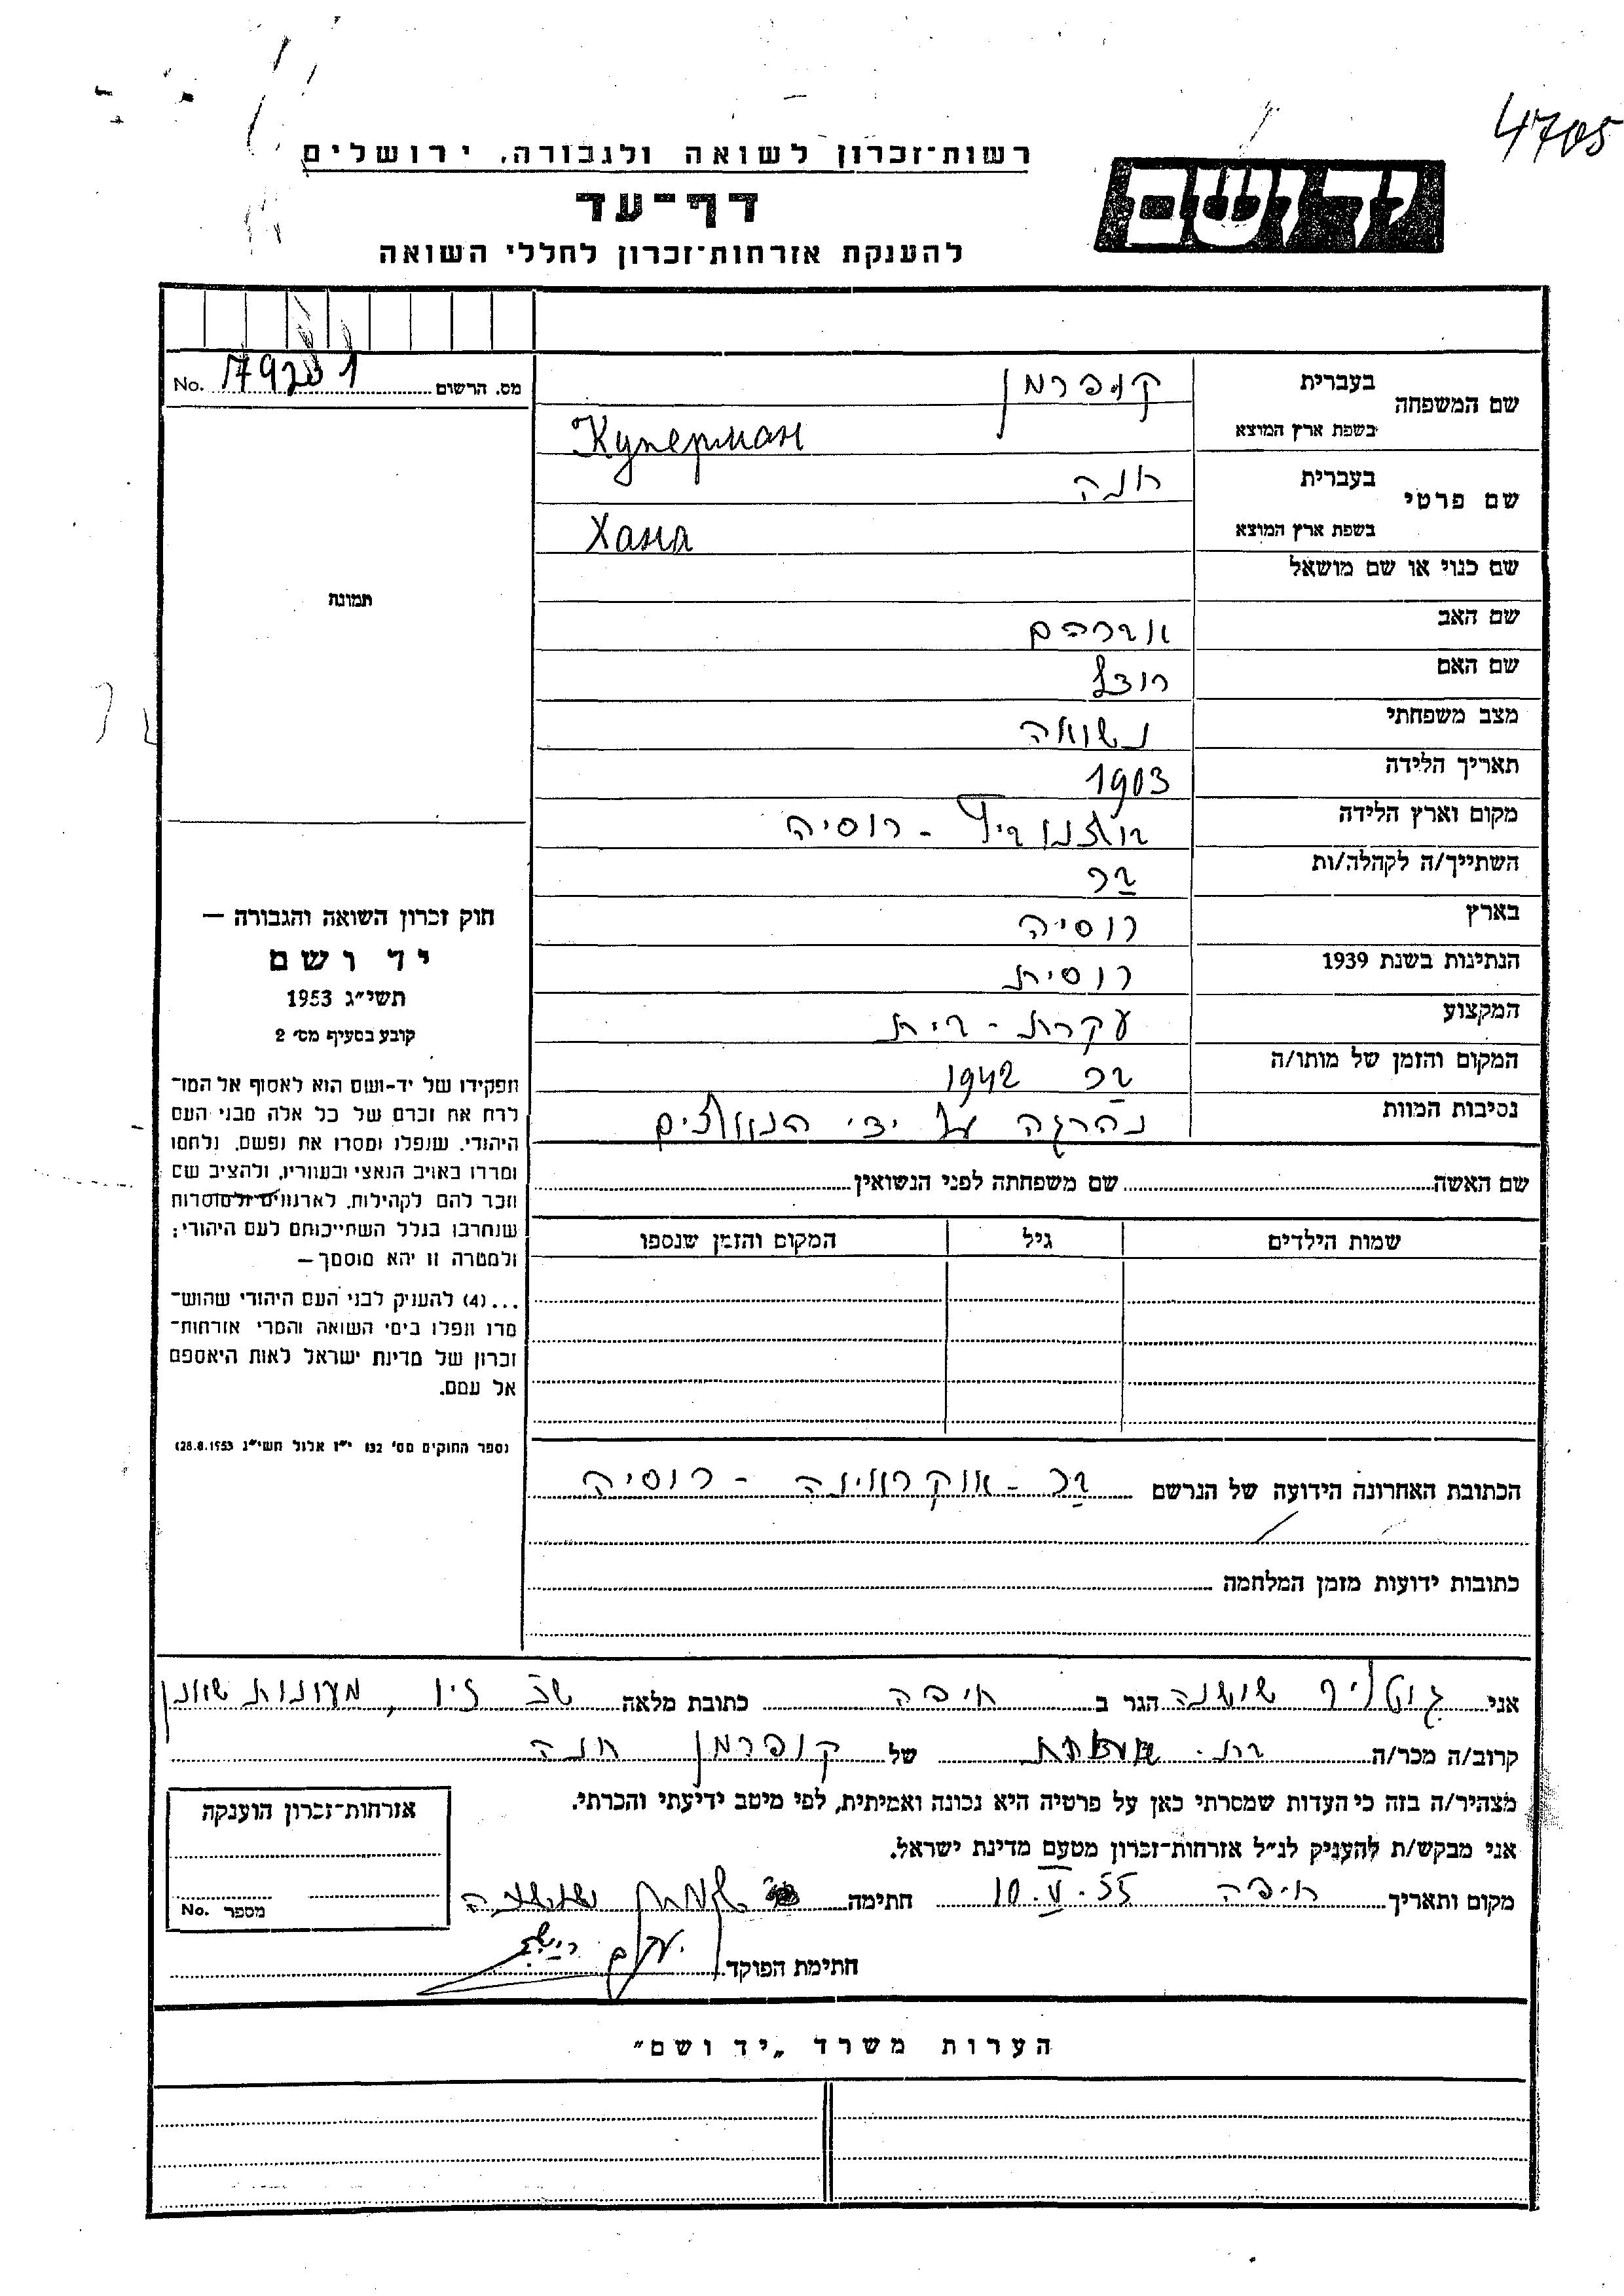 4705
רשות־זכרון לשואה ולגבורה, ירושלים
יד ושם
דף־עד
להענקת אזרחות־זכרון לחללי השואה
No. 179281 מס. הרשום
שם המשפחה בעברית קופרמן
בשפת ארץ המוצא Куперман
שם פרטי בעברית חנה
בשפת ארץ המוצא Хана
שם כנוי או שם מושאל
שם האב אברהם
שם האם רוזל
מצב משפחתי נשואה
תאריך הלידה 1903
מקום וארץ הלידה - רוסיה
השתייך/ה לקהלה/ות בר
בארץ רוסיה
הנתינות בשנת 1939 רוסית
המקצוע עקרת - בית
המקום והזמן של מותו/ה בר 1942
נסיבות המוות נהרגה על ידי הנאצים
תמונה
חוק זכרון השואה והגבורה —
יד ושם
תשי״ג 1953
קובע בסעיף מס׳ 2
תפקידו של יד-ושם הוא לאסוף אל המו־
לדת את זכרם של כל אלה מבני העם
היהודי, שנפלו ומסרו את נפשם, נלחמו
ומרדו באויב הנאצי ובעוזריו, ולהציב שם
וזכר להם לקהילות, לארגונים ולמוסדות
שנחרבו בגלל השתייכותם לעם היהודי;
ולמטרה זו יהא מוסמך—
...(4) להעניק לבני העם היהודי שהוש־
מדו ונפלו בימי השואה והמרי אזרחות־
זכרון של מדינת ישראל לאות היאספם
אל עמם.
(ספר החוקים מס׳ 132 י״ז אלול תשי״ג 28.8.1953)
שם האשה שם משפחתה לפני הנשואין
שמות הילדים גיל המקום והזמן שנספו
הכתובת האחרונה הידועה של הנרשם בר - אוקראינה - רוסיה
כתובות ידועות מזמן המלחמה
אני גוטליב שושנה הגר ב חיפה כתובת מלאה זיו, מעונות
קרוב/ה מכר/ה של קופרמן חנה
מצהיר/ה בזה כי העדות שמסרתי כאן על פרטיה היא נכונה ואמיתית, לפי מיטב ידיעתי והכרתי.
אני מבקש/ת להעניק לנ״ל אזרחות־זכרון מטעם מדינת ישראל.
מקום ותאריך חיפה 10.V.55 חתימה שושנה
חתימת הפוקד
אזרחות־זכרון הוענקה
No. מספר
הערות משרד „יד ושם״